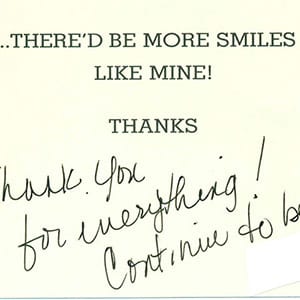 ..THERE'D BE MORE SMILES
LIKE MINE!
THANKS
Thank You
for everything!
Continue to be